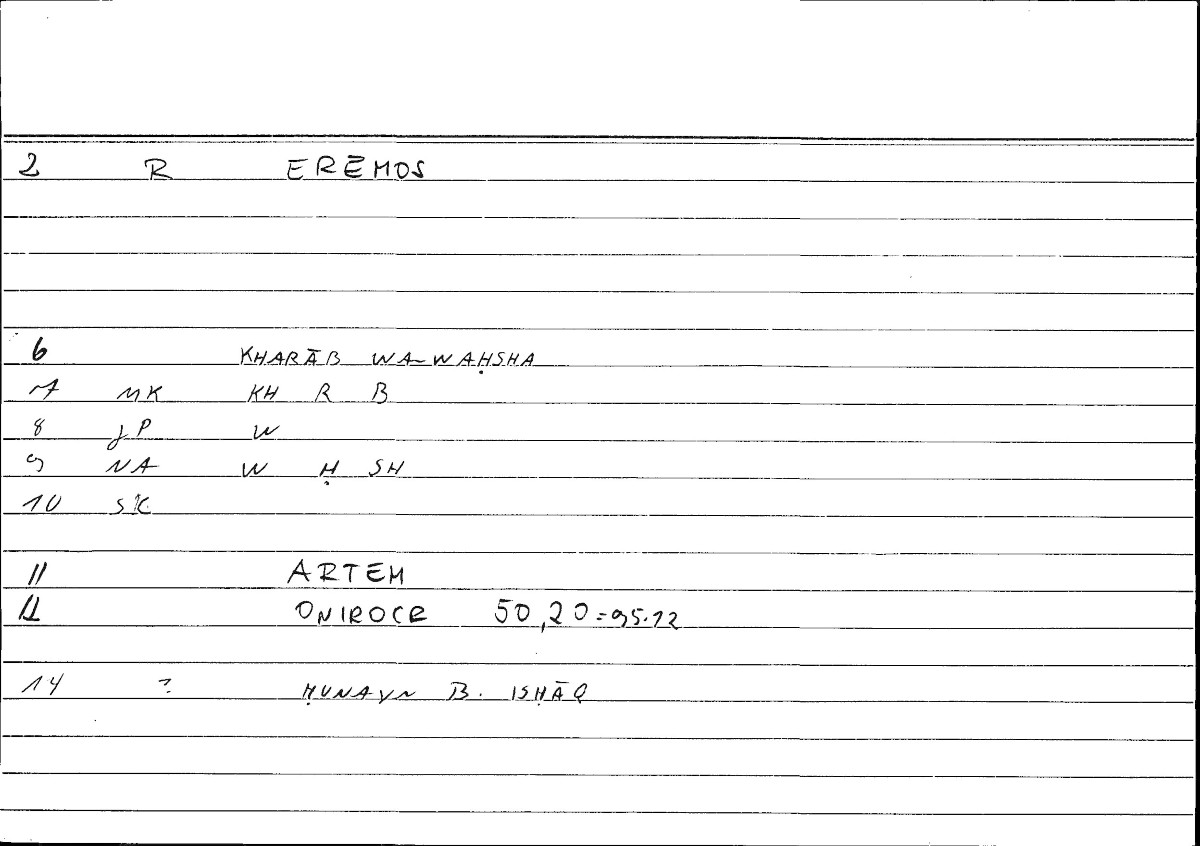 2 R ERĒMOS
6 KHARĀB WA-WAḤSHA
7 MK KH R B
8 JP W
9 NA W Ḥ SH
10 SK
11 ARTEM
12 ONIROCR 50,20=95.12
14 ? ḤUNAYN B. ISḤĀQ